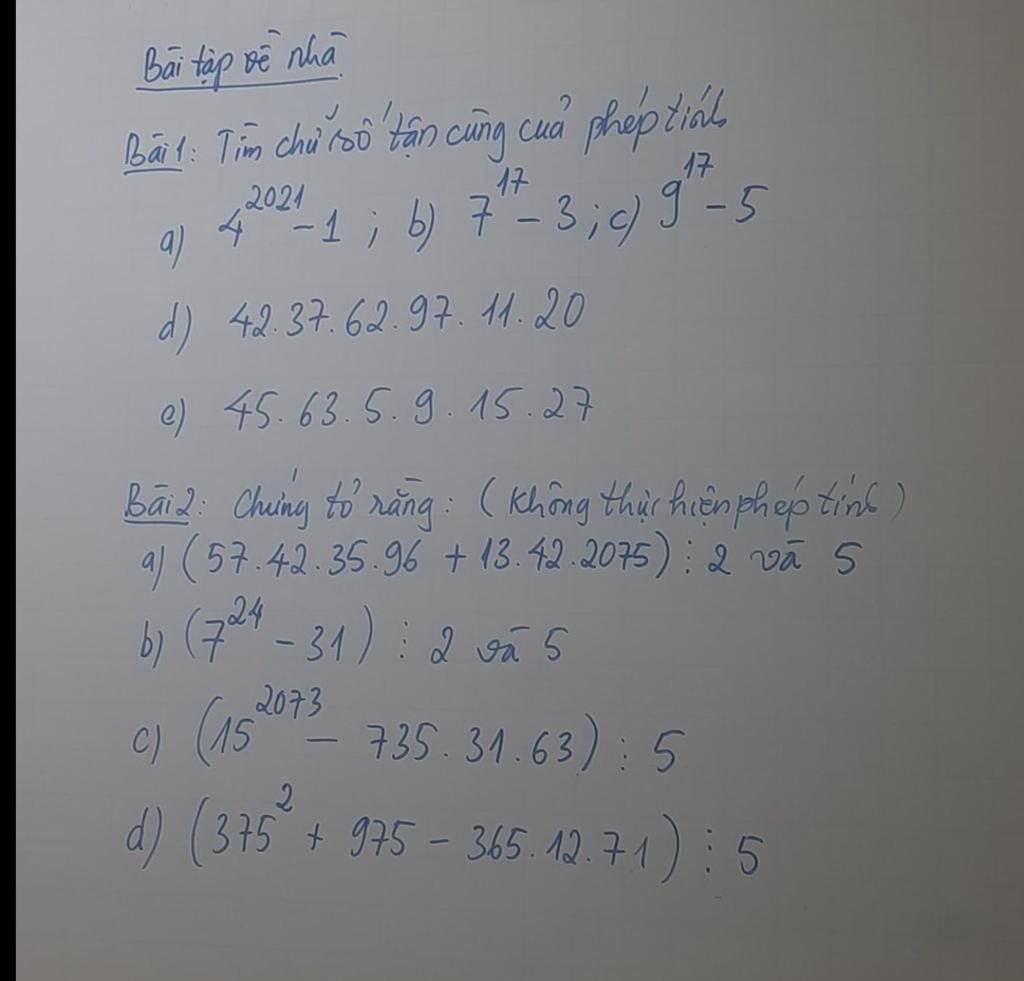 Bài tập về nhà
Bài 1: Tìm chữ số tận cùng của phép tính
a) 4²⁰²¹ - 1 ; b) 7¹⁷ - 3 ; c) 9¹⁷ - 5
d) 42.37.62.97.11.20
e) 45.63.5.9.15.27
Bài 2: Chứng tỏ rằng: (không thực hiện phép tính)
a) (57.42.35.96 + 13.42.2075) ⋮ 2 và 5
b) (7²⁴ - 31) ⋮ 2 và 5
c) (15²⁰⁷³ - 735.31.63) ⋮ 5
d) (375² + 975 - 365.12.71) ⋮ 5